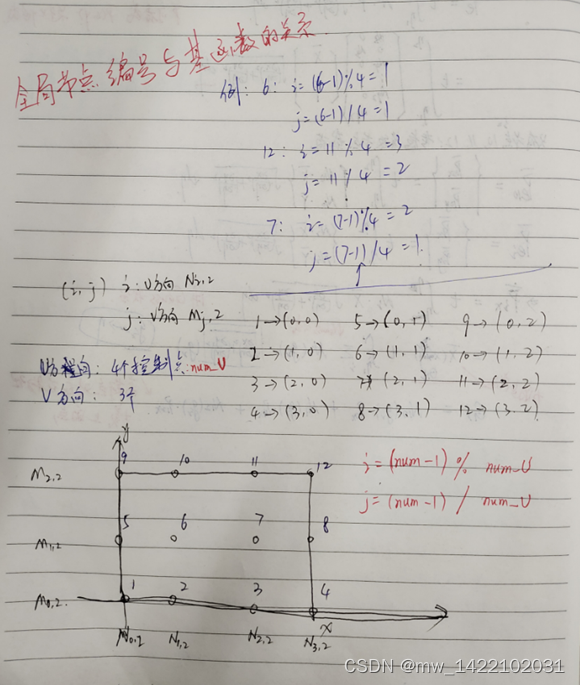 全局节点编号与基函数的关系.
例: 6: i=(6-1)%4=1
j=(6-1)/4=1
12: i=11%4=3
j=11/4=2
7: i=(7-1)%4=2
j=(7-1)/4=1.
(i,j) i:U方向 Ni,2
j:V方向 Mj,2
1→(0,0) 5→(0,1) 9→(0,2)
2→(1,0) 6→(1,1) 10→(1,2)
3→(2,0) 7→(2,1) 11→(2,2)
4→(3,0) 8→(3,1) 12→(3,2)
U方向: 4个控制点 num_U
V方向: 3个
i=(num-1)% num_U
j=(num-1)/ num_U
y
9 10 11 12
M2,2
5 6 7 8
M1,2
1 2 3 4
M0,2
x
N0,2 N1,2 N2,2 N3,2
CSDN @mw_1422102031